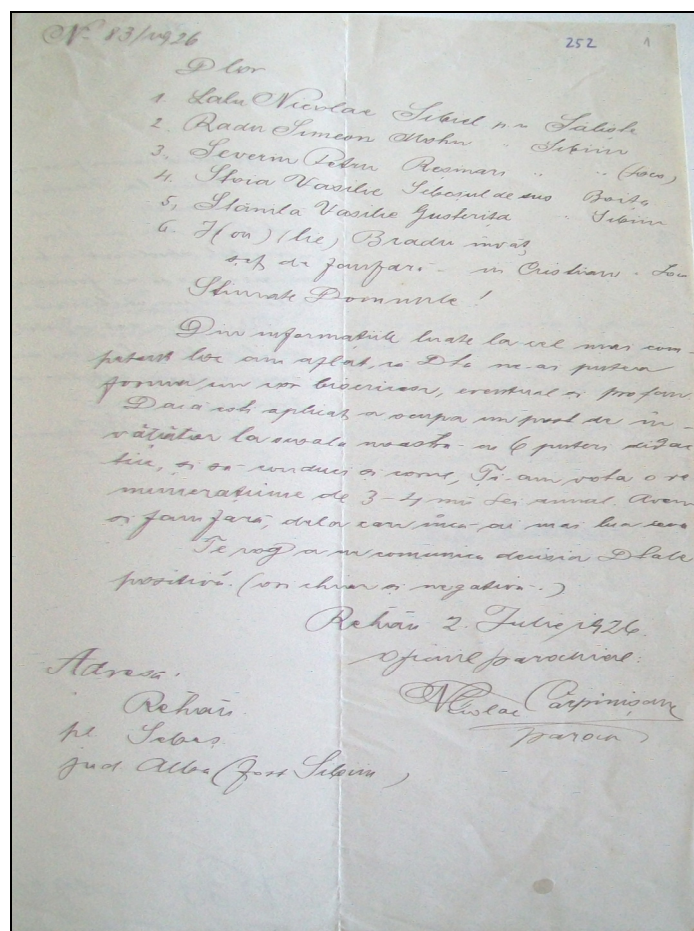 No 83/1926
252 1
Dlor
1. Lalu Nicolae Sibiel p. u. Saliste
2. Radu Simeon Mohu " Sibiiu
3. Severin Petru Reșinari " " (loco)
4. Stoia Vasilie Sebeșul de sus Boița
5, Stămila Vasilie Gusterița " Sibiiu
6. I(on) (lie) Bradu învăț
șef de fanfară - în Cristian - Loco
Stimate Domnule!
Din informațiile luate la cel mai com-
petent loc am aflat, că Dta ne-ai putea
forma un cor bisericesc, eventual și profan
Dacă ești aplicat a ocupa un post de în-
vățător la școala noastră cu 6 puteri didac
tice, și să conduci și corul, Ți-am vota o re
munerațiune de 3-4 mii Lei anual. Avem
și fanfară, dela care încă ai mai lua ceva
Te rog a ne comunica decisia Dtale
positivă. (ori chiar și negativă.)
Rehău 2. Iulie 1926.
Oficiul parochial:
Nicolae Cărpinișan
paroch
Adresa:
Rehău
pl. Sebeș
jud. Alba (fost Sibiiu)